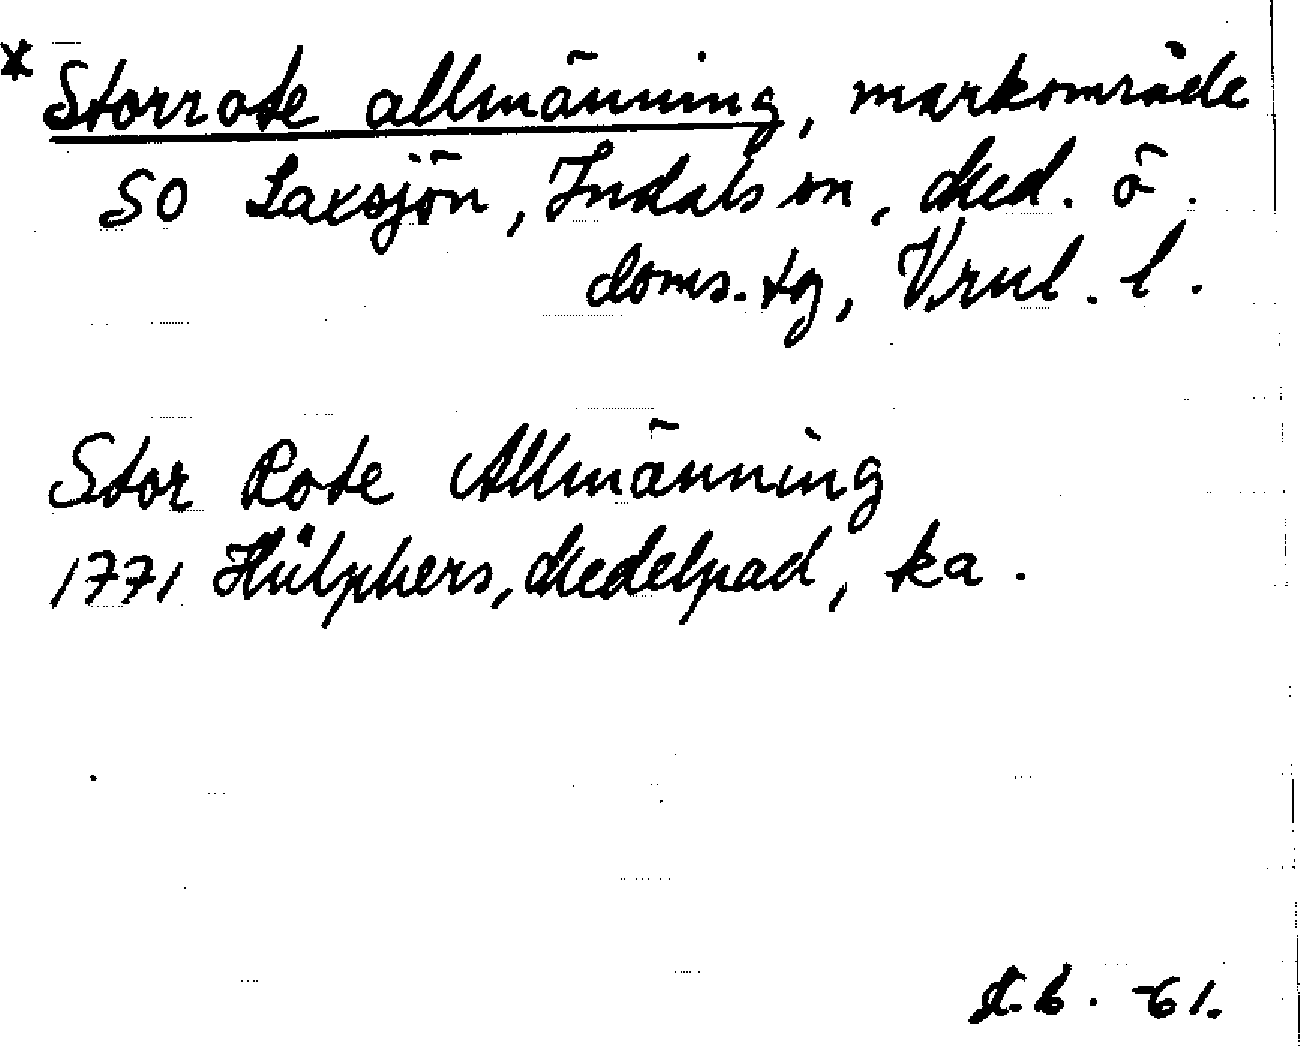 * Storrote allmänning, markområde
SO Laxsjön, Indals sn, Med. ö.
doms.tg, Vrnl. l.
Stor Rote Allmänning
1771 Hülphers, Medelpad, ka.
-61.